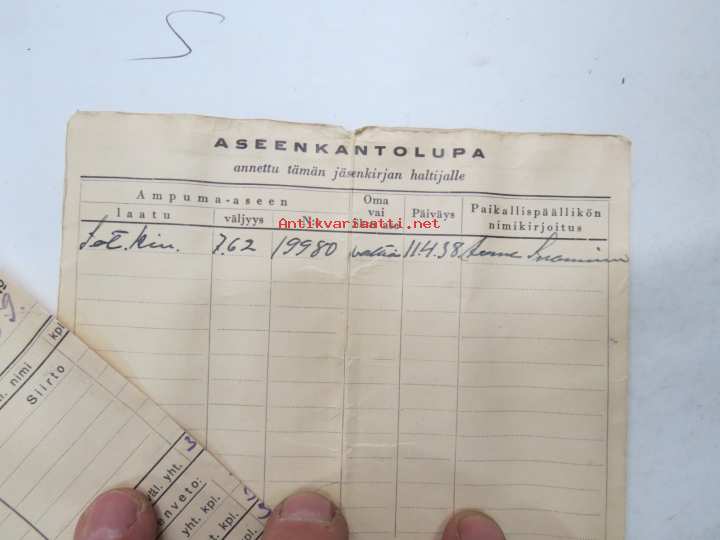 S
ASEENKANTOLUPA
annettu tämän jäsenkirjan haltijalle
Ampuma-aseen
Oma vai
Päiväys
Paikallispäällikön nimikirjoitus
laatu
väljyys
N:o
Antikvariaatti.net
Sot. kiv.
7.62
19980
valtio
11.4.38
9.
nimi
kpl.
Siirto
väl. yht.
3
enveto:
yht. kpl.
kpl.